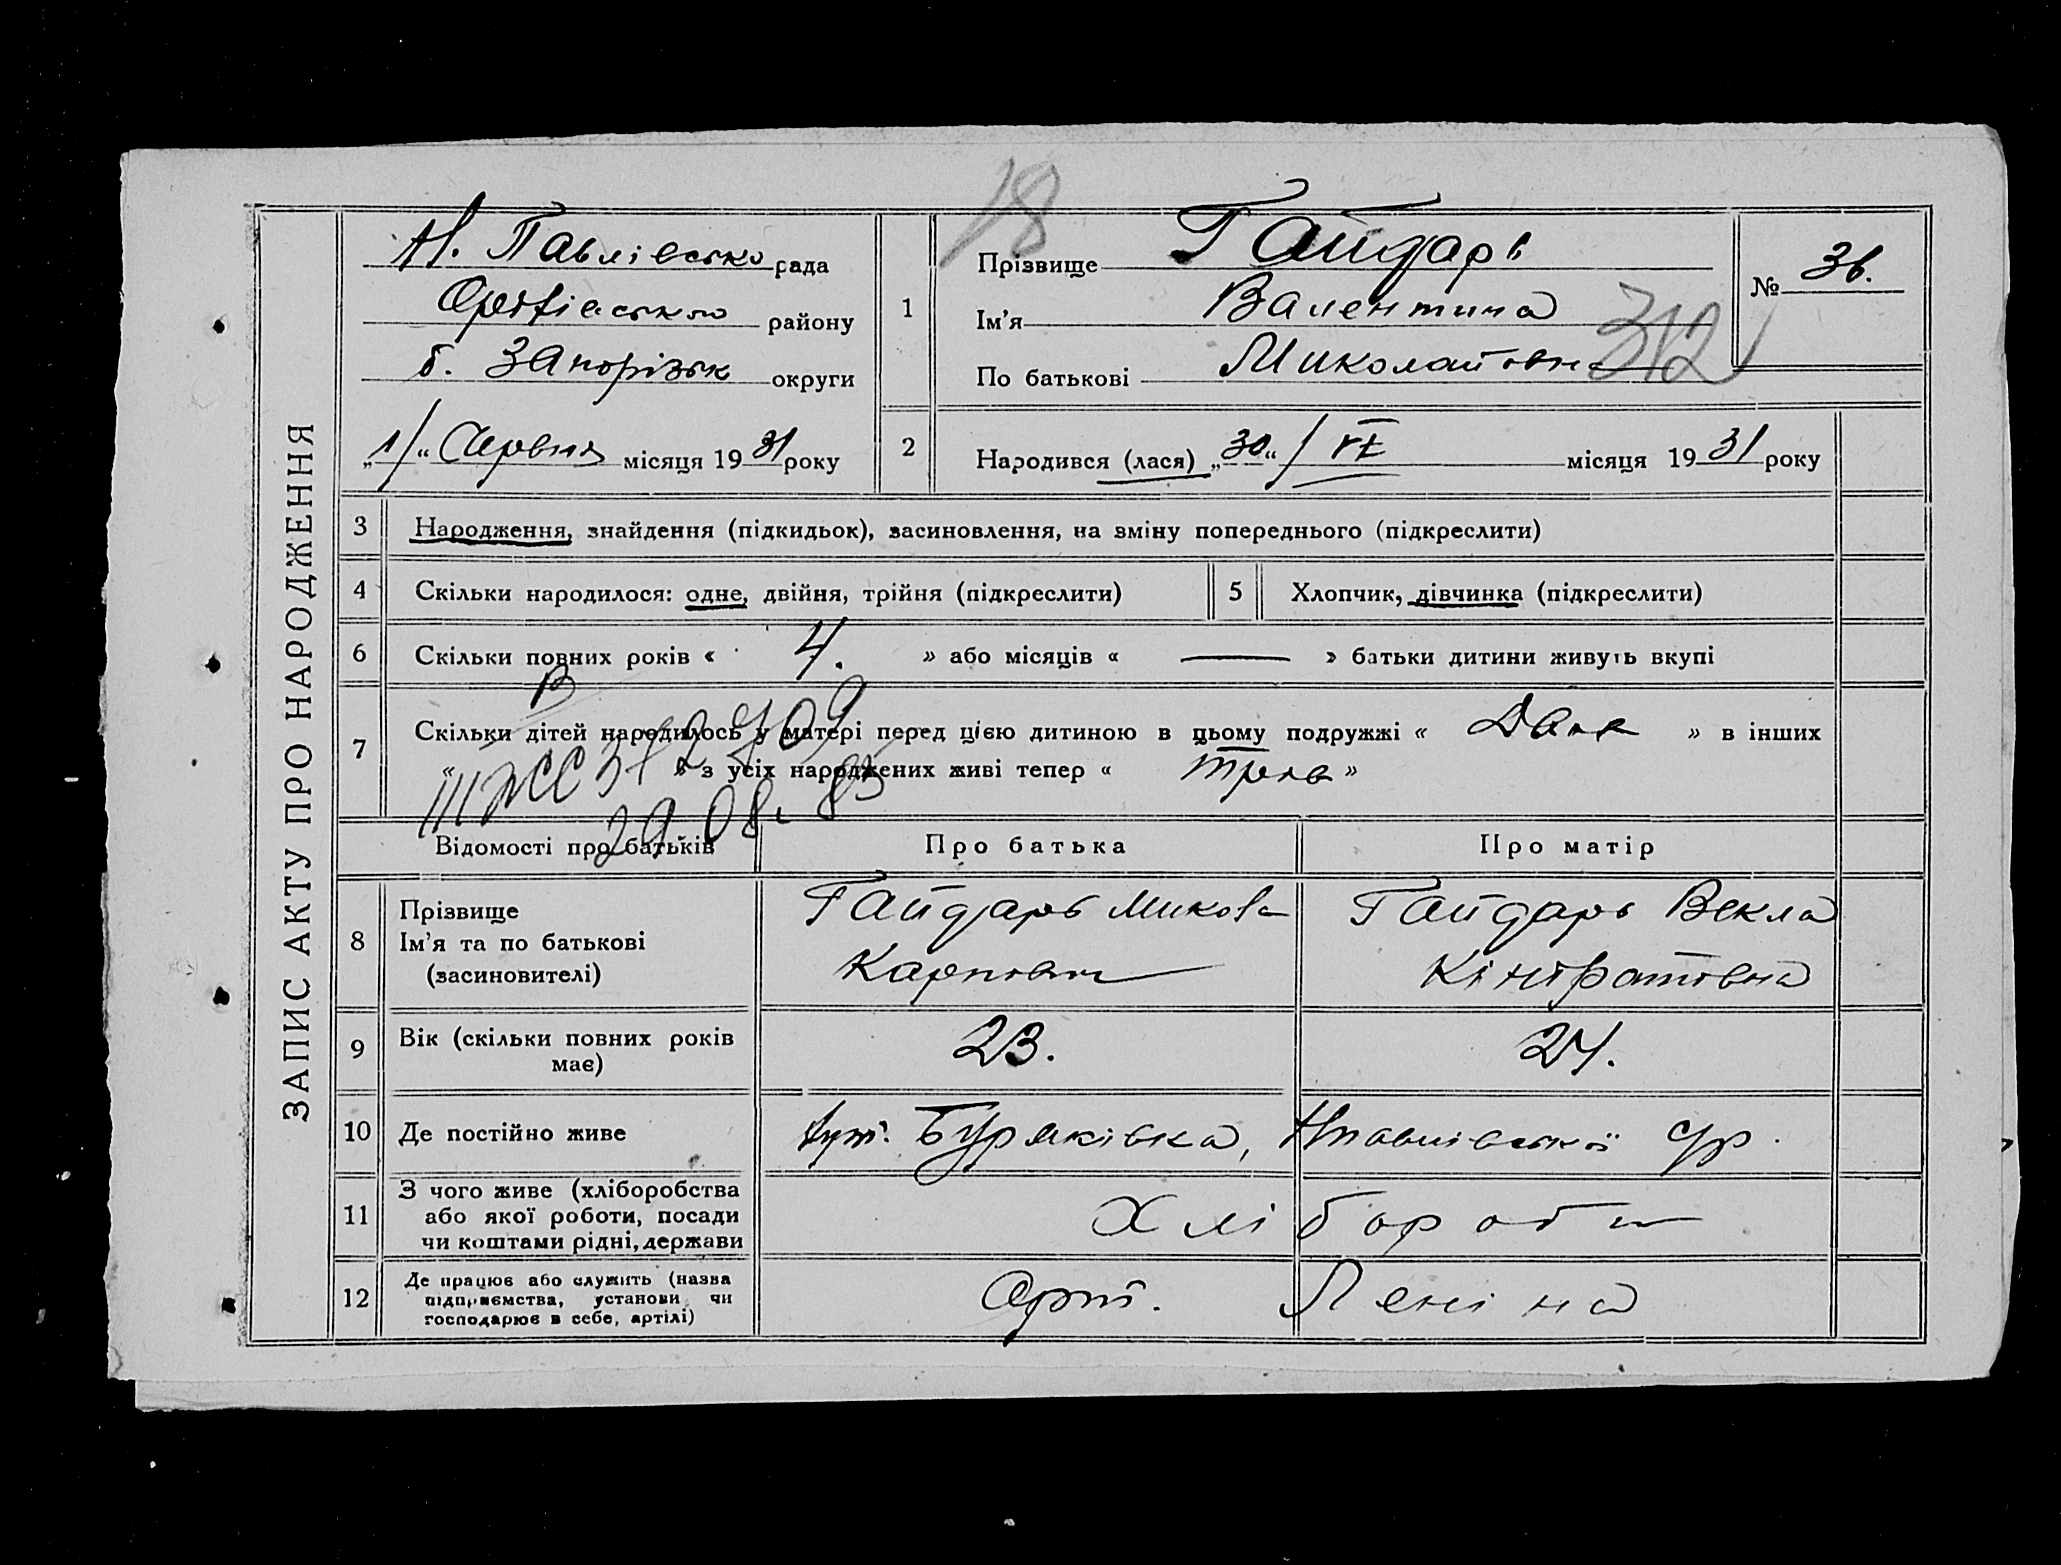 ЗАПИС АКТУ ПРО НАРОДЖЕННЯ
Н. Павлівсько рада
Оріхівсько району
б. Запоріжж округи
„1/“ Червня місяця 1931 року
18
1
Прізвище Гайдарь
Ім'я Валентина
По батькові Миколаївна
№ 36.
312
2
Народився (лася) „30“ / VI місяця 1931 року
3 Народження, знайдення (підкидьок), засиновлення, на зміну попереднього (підкреслити)
4 Скільки народилося: одне, двійня, трійня (підкреслити)
5 Хлопчик, дівчинка (підкреслити)
6 Скільки повних років « 4. » або місяців « — » батьки дитини живуть вкупі
7 Скільки дітей народилось у матері перед цією дитиною в цьому подружжі « Двоє » в інших
« » з усіх народжених живі тепер « троє »
29.08.83
Відомості про батьків
Про батька
Про матір
8 Прізвище
Ім'я та по батькові
(засновителі)
Гайдарь Микола
Карпович
Гайдарь Векла
Кіндратовна
9 Вік (скільки повних років
має)
23.
24.
10 Де постійно живе
хут. Буряківка, Нпавлівської с/р.
11 З чого живе (хліборобства
або якої роботи, посади
чи коштами рідні, держави
Хлібороби
12 Де працює або служить (назва
підприємства, установи чи
господарює в себе, артілі)
Арт. Леніна